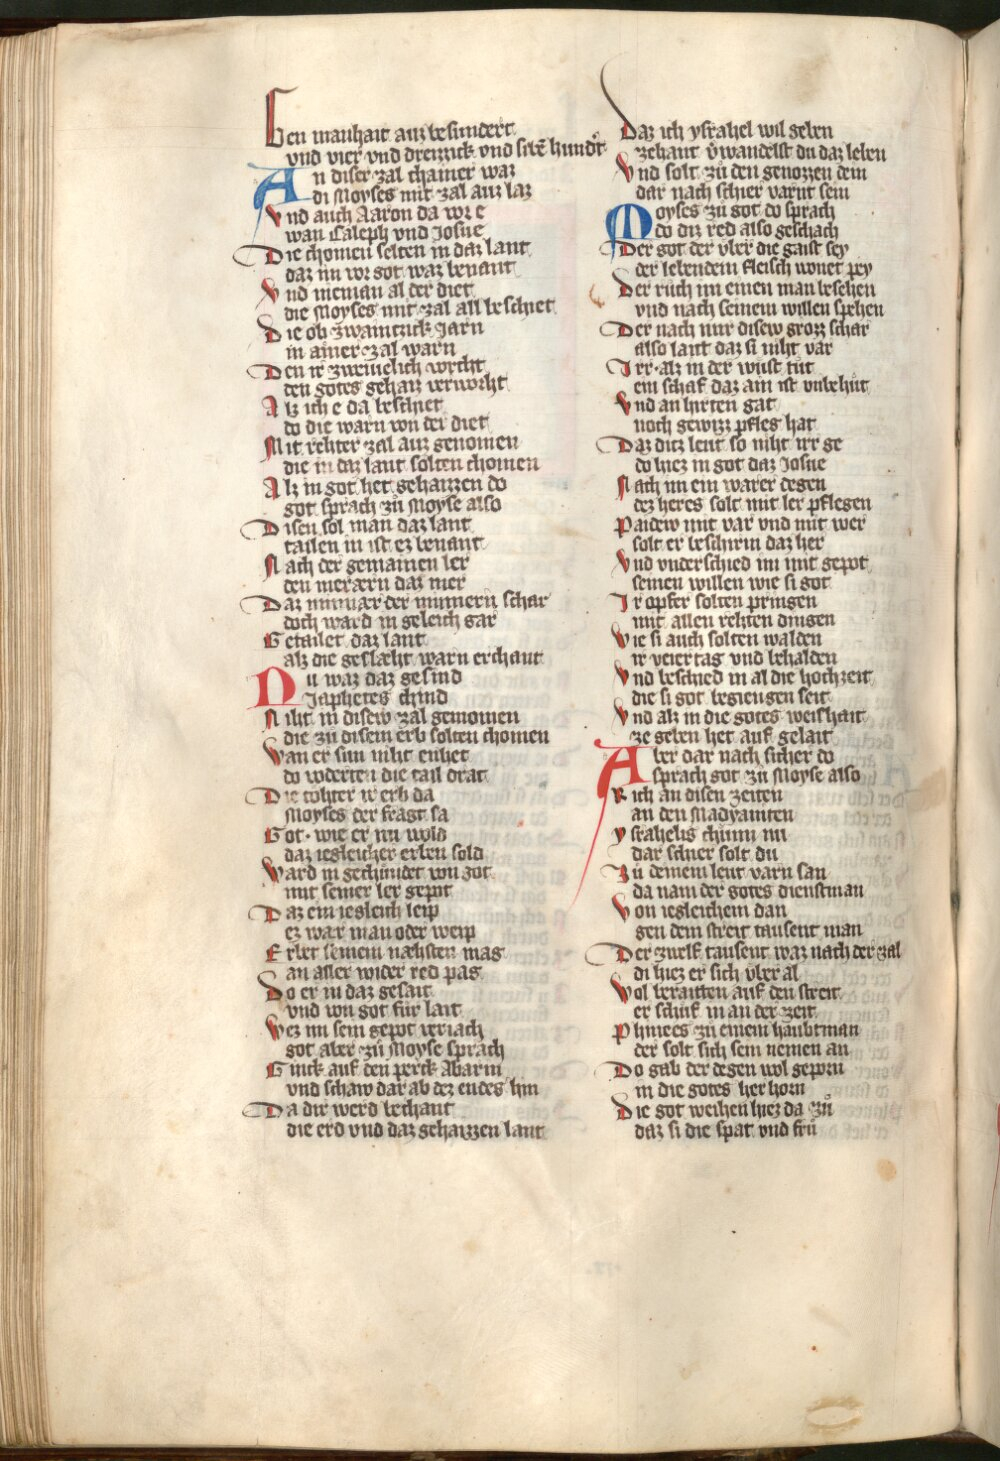 ben manhait auz besundert
vnd vier vnd dreizzick vnd sibē hundͬt
An diser zal chainer waz
di Moyses mit zal auz laz
Vnd auch Aaron da vor e
wan Caleph vnd Josue
Die chomen selten in daz lant
daz im vor got waz benant
Vnd nieman al der diet
die Moyses mit zal all beschiet
Die ob zwaintzick Jarn
in ainer zal warn
Den ir zweiuelich vorcht
den gotes gehaiz verworht
Alz ich e da beschiet
do die warn von der diet
Mit rehter zal auz genomen
die in daz lant solten chomen
Alz in got het gehaizzen do
got sprach zů Moyse also
Disen sol man daz lant
tailen in ist ez benant
Nach der gemainen ler
den merærn daz mer
Daz minnær der minnern schar
doch ward in geleich gar
Getailet daz lant
alz die geslæht warn erchant
Nu waz daz gesind
Japhetes chind
Niht in disew zal genomen
die zů disem erb solten chomen
Wan er sun niht enhet
do vorderten die tail drat
Die tohter ir erb da
Moyses der fragt sa
Got wie er nu wold
daz iegleicher erben sold
Ward in gechündet von got
mit seiner ler gepot
Daz ein iegleich leip
ez wær man oder weip
Erbet seinem næhsten mag
an aller wider red pag
Do er in daz gesait
vnd von got für lait
Wez im sein gepot veriach
got aber zů Moyse sprach
Ginck auf den perck Abarim
vnd schaw dar ab dez endes hin
Da dir werd bechant
die erd vnd daz gehaizzen lant
Daz ich ysrahel wil geben
zehant v̊wandelst du daz leben
Vnd solt zů den genozzen dein
dar nach schier varnt sein
Moyses zů got do sprach
do diz red also geschach
Der got der vber die gaist sey
der lebendem fleisch wonet pey
Der růch im einen man besehen
vnd nach seinem willen spehen
Der nach mir disew grozz schar
also lait daz si niht var
Irr alz in der wüst tüt
ein schaf daz ain ist vnbehüt
Vnd an hirten gat
noch gewizz pfleg hat
Daz ditz leut so niht irr ge
do hiez in got daz Josue
Nach im ein warer degen
dez heres solt mit ler pflegen
Paidew mit var vnd mit wer
solt er beschirm daz her
Vnd vnderschied im mit gepot
seinen willen wie si got
Ir opfer solten pringen
mit allen rehten dingen
Wie si auch solten walden
ir veiertag vnd behalden
Vnd beschied in al die hochzeit
die si got begiengen seit
Vnd alz in die gotes weishait
ze geben het auf gelait
Aber dar nach sicher do
sprach got zů Moyse also
Rich an disen zeiten
an den Madyaniten
ysrahelis chunn nu
dar schier solt du
Zů deinem leut varn san
da nam der gotes dienstman
Von iegleichem dan
gen dem streit tausent man
Der zwelf tausent waz nach der zal
di hiez er sich vber al
Wol beraitten auf den streit
er schuf in an der zeit
Phinees zu einem haubtman
der solt sich sein nemen an
Do gab der degen wol geporn
in die gotes her horn
Die got weihen hiez da zů
daz si die spat vnd frů